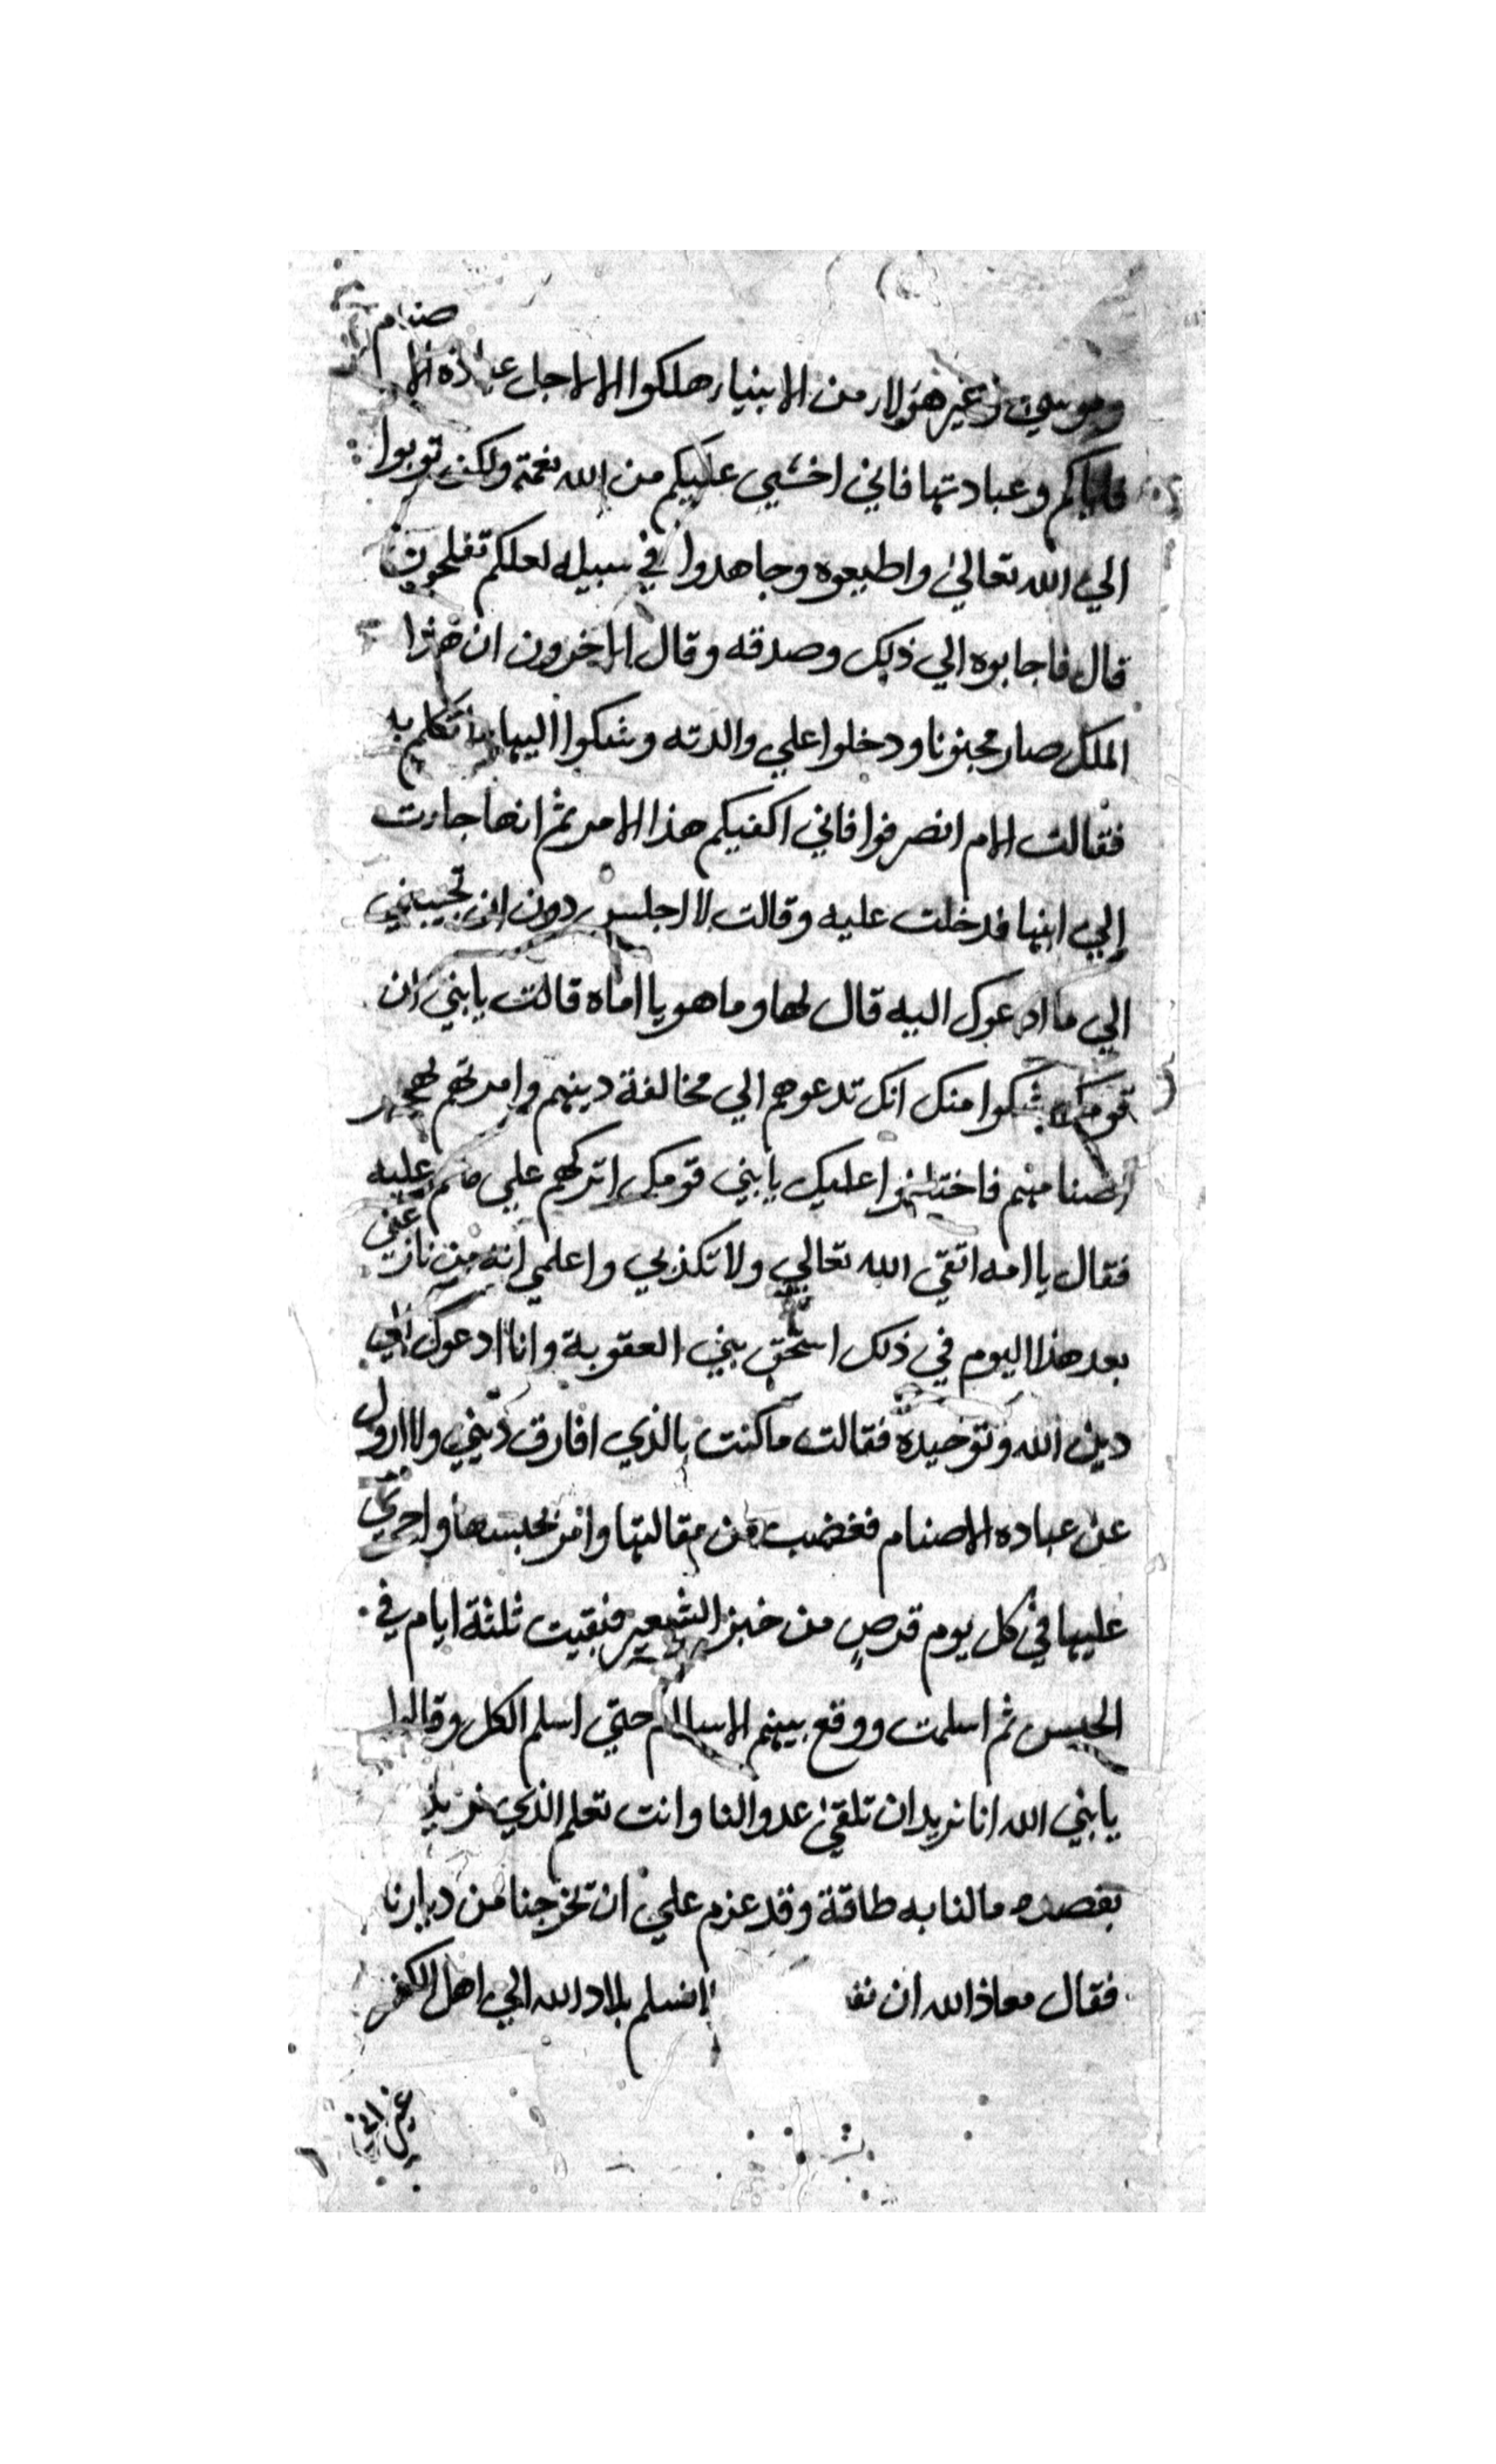 وموسي وغير هولاء من الانبياء هلكوا الا لاجل عباده الاصنام
فاياكم وعبادتها فاني اخشي عليكم من الله نقمة ولكن توبوا
الي الله تعالي واطيعوه وجاهدوا في سبيله لعلكم تفلحون
قال فاجابوه الي ذلك وصدقه وقال الاخرون ان هذا
الملك صار مجنونا ودخلوا علي والدته وشكوا اليها ما تكلم به
فقالت الام انصرفوا فاني اكفيكم هذا الامر ثم انها جاءت
إلي ابنها فدخلت عليه وقالت لا اجلس دون ان تجيبني
الي ما ادعوك اليه قال لها وما هو يا اماه قالت يا بني ان
قومك شكوا منك انك تدعوهم الي مخالفة دينهم وامرتهم بهجر
اصنامهم فاختلفوا عليك يا بني قومك اتركهم علي ما هم عليه
فقال يا امه اتقي الله تعالي ولا تكذبي واعلمي انه من نازعني
بعد هذا اليوم في ذلك استحق مني العقوبة وانا ادعوك الي
دين الله وتوحيده فقالت ما كنت بالذي افارق ديني ولا ازول
عن عباده الاصنام فغضب من مقالتها وامر بحبسها واجري
عليها في كل يوم قرص من خبز الشعير فبقيت ثلثة ايام في
الحبس ثم اسلمت ووقع بينهم الاسلام حتي اسلم الكل وقالوا
يا بني الله انا نريد ان تلقي عدوا لنا وانت تعلم الذي نريد
بقصده ما لنا به طاقة وقد عزم علي ان تخرجنا من ديارنا
فقال معاذ الله ان نسلم بلاد الله الي اهل الكفر